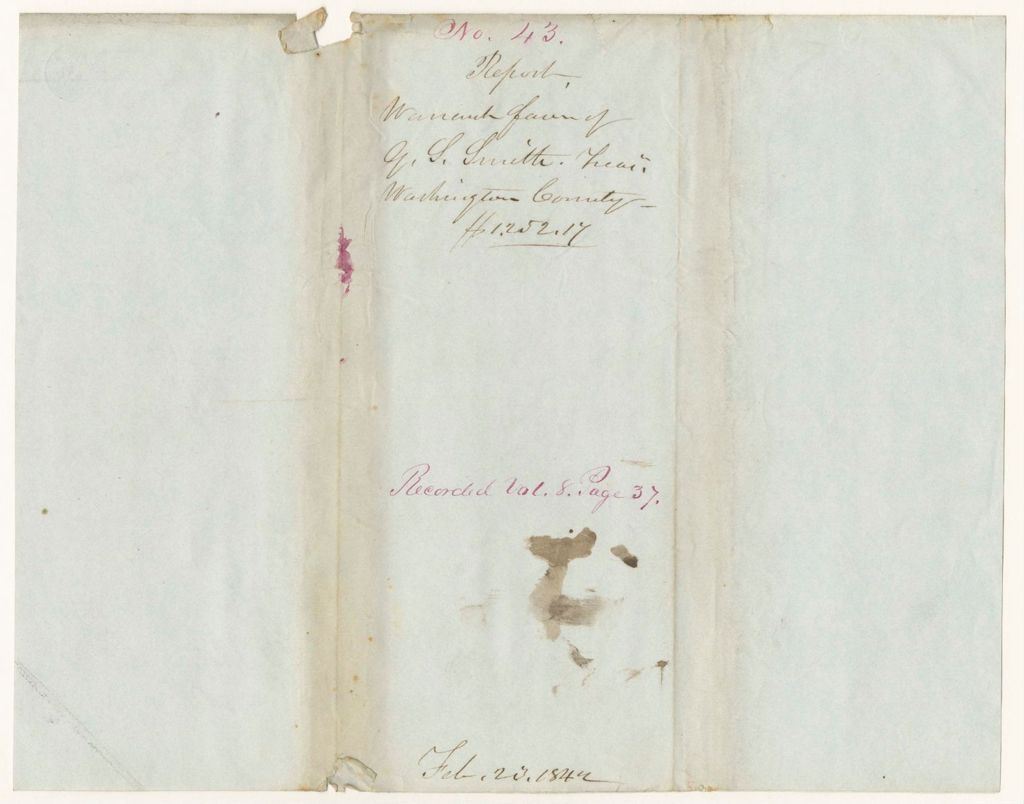 No. 43.
Report,
Warrant favor of
G. S. Smith. Treas.
Washington County
$1252.17
Recorded Vol. 8. Page 37.
Feb. 23. 1842